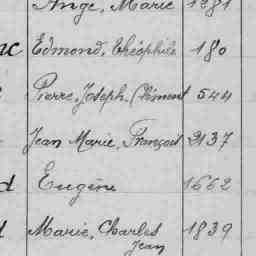 Ange, Marie 1281
Edmond, Théophile 180
Pierre, Joseph, Clément 544
Jean Marie, François 2137
Eugène 1662
Marie, Charles 1839
Jean